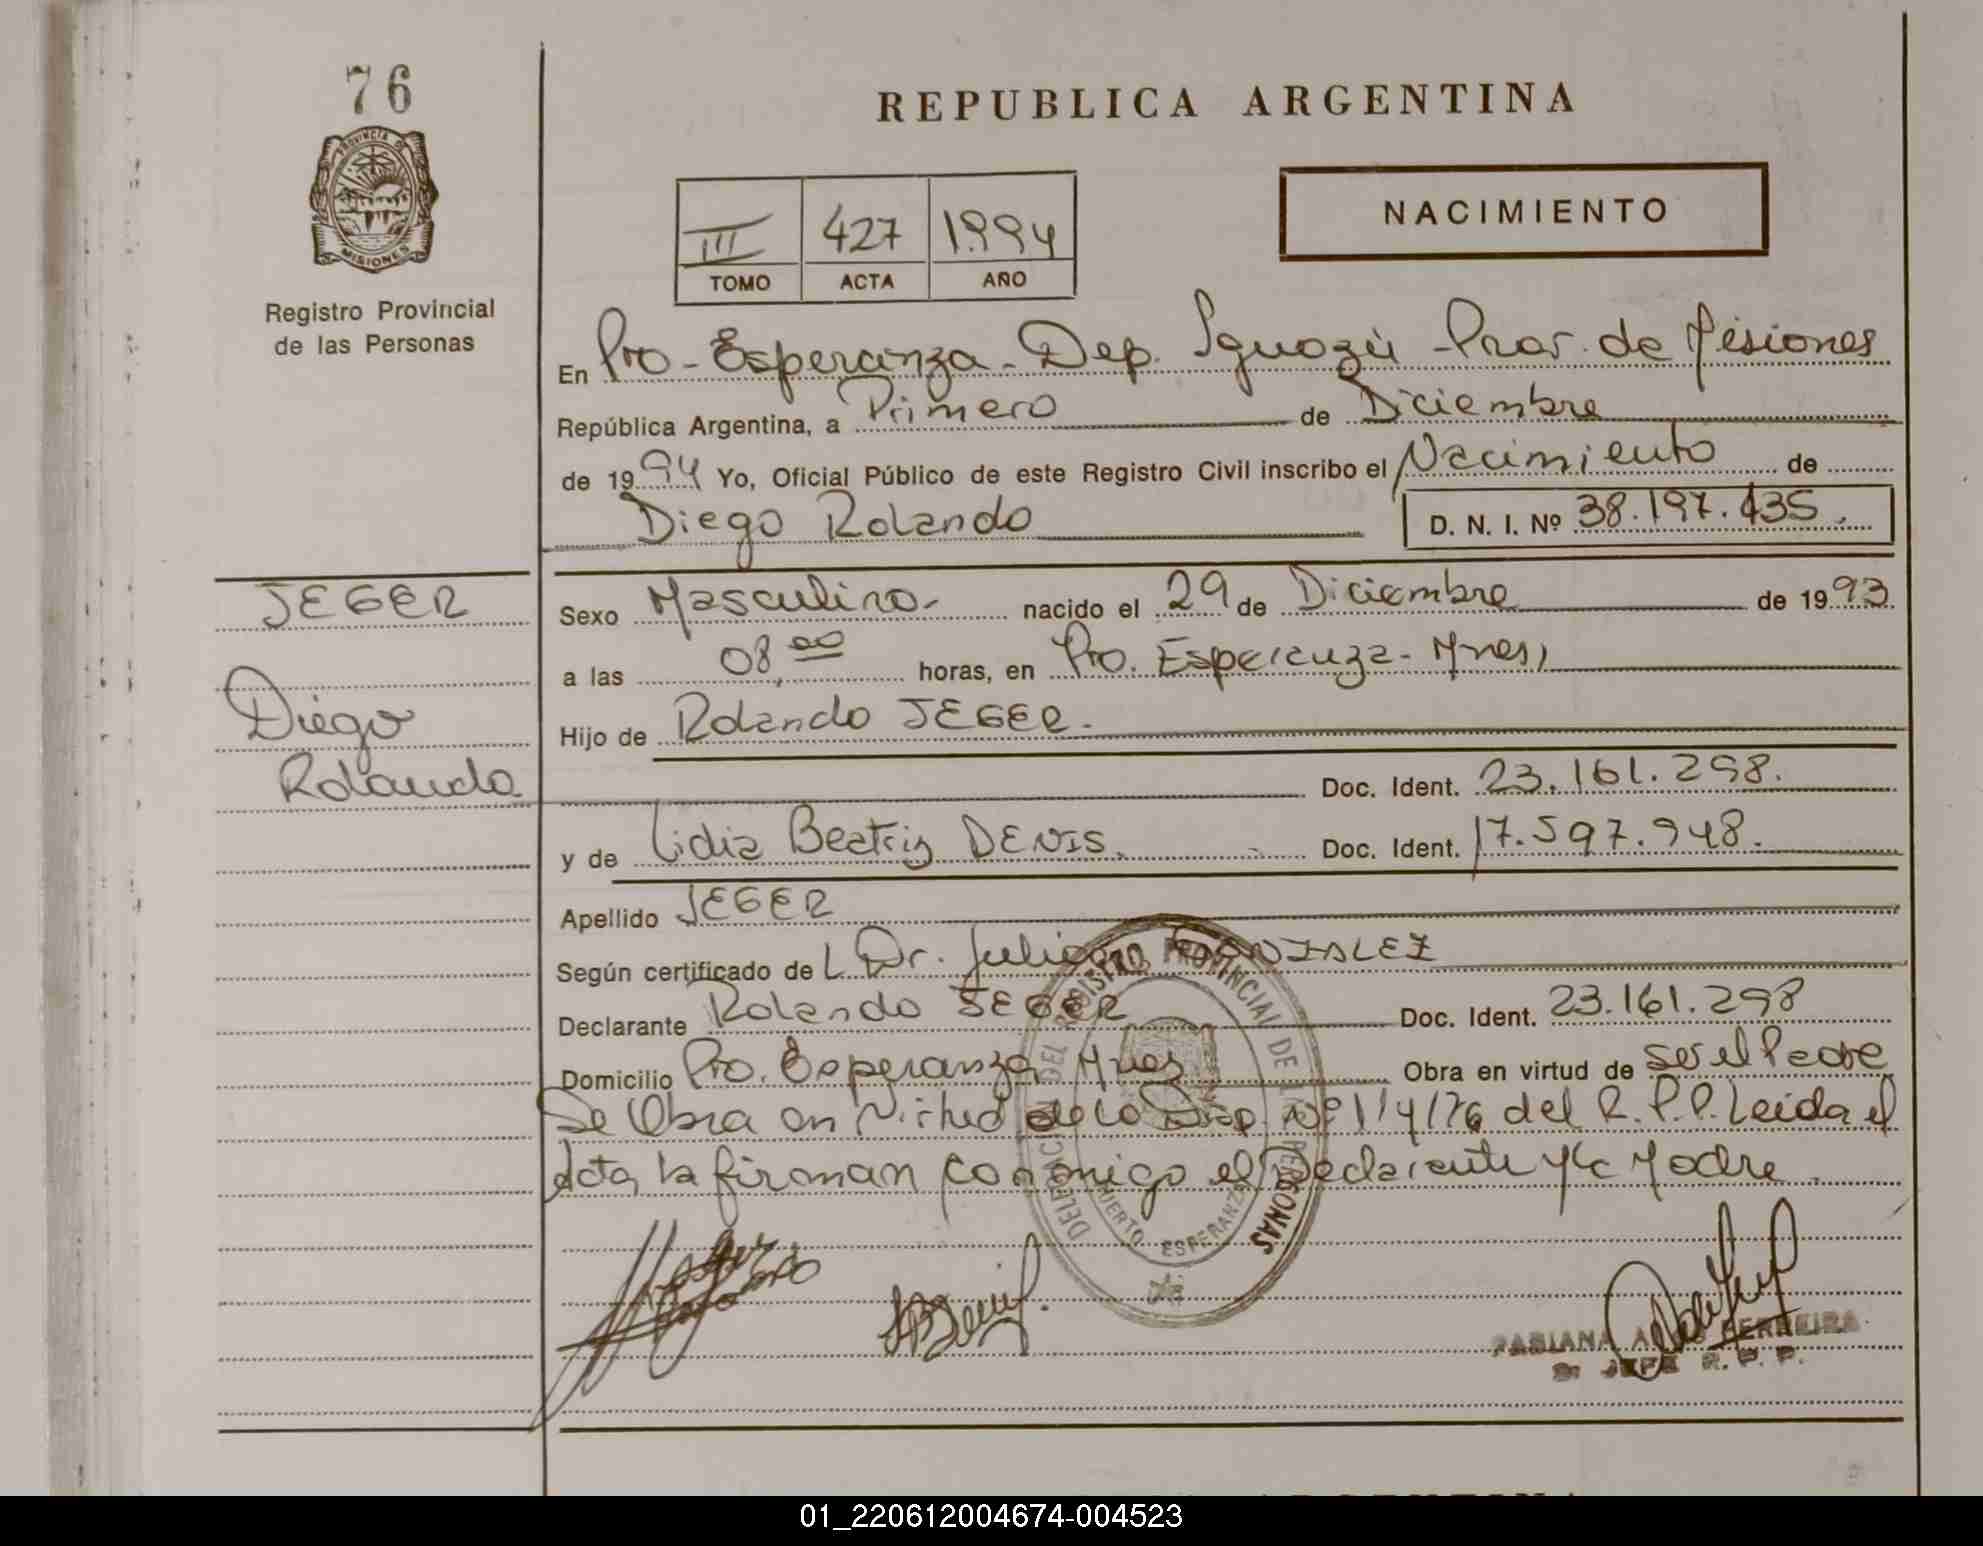 76
PROVINCIA DE
MISIONES
Registro Provincial
de las Personas
REPUBLICA ARGENTINA
III 427 1994
TOMO ACTA AÑO
NACIMIENTO
En Pto - Esperanza - Dep. Iguazú - Prov. de Misiones
República Argentina, a Primero de Diciembre
de 1994 Yo, Oficial Público de este Registro Civil inscribo el Nacimiento de
Diego Rolando D. N. I. Nº 38.197.435.
JEGER
Diego
Rolando
Sexo Masculino. nacido el 29 de Diciembre de 1993
a las 08,00 horas, en Pto. Esperanza - Mnes,
Hijo de Rolando JEGER.
Doc. Ident. 23.161.298.
y de Lidia Beatriz DENIS. Doc. Ident. 17.597.948.
Apellido JEGER
Según certificado de L Dr. Julio GONZALEZ
Declarante Rolando JEGER Doc. Ident. 23.161.298
Domicilio Pto. Esperanza, Mnes Obra en virtud de ser el Padre
Se Obra en Virtud de la Disp. Nº 114/76 del R.P.P. Leida el
Acta, la firman conmigo el Declarante y la Madre.
DELEGACION DEL REGISTRO PROVINCIAL DE LAS PERSONAS
PUERTO ESPERANZA
FABIANA FERREIRA
JEFE R. P. P.
01_220612004674-004523